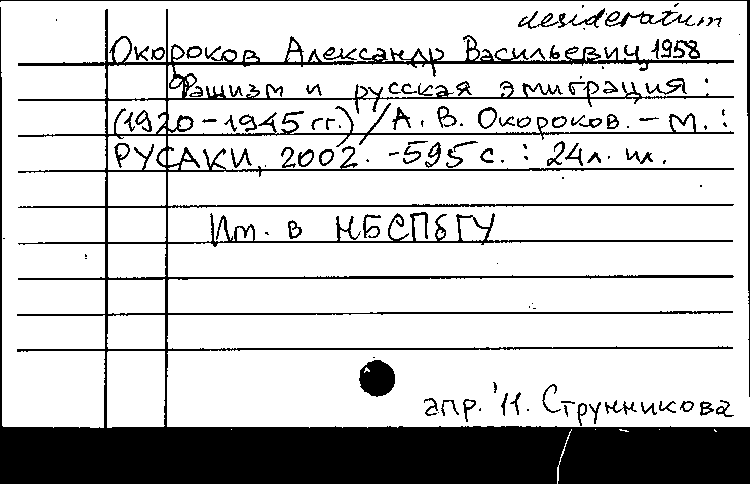 desideratum
Окороков Александр Васильевич, 1958
Фашизм и русская эмиграция :
(1920-1945 гг.) / А. В. Окороков. - М. :
РУСАКИ, 2002. - 595 с. : 24л. ил.
Им. в НБСПбГУ
апр. '11. Струнникова